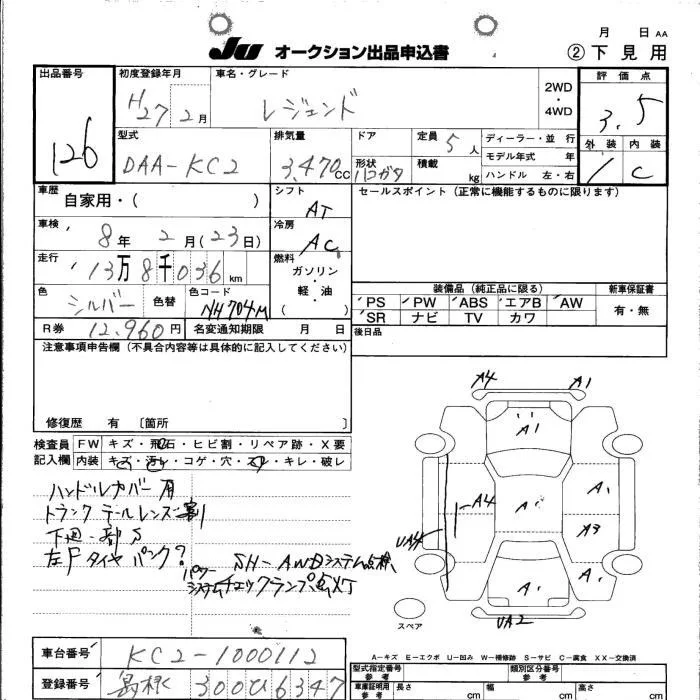 月 日 AA
JU オークション出品申込書
② 下見用
出品番号
126
初度登録年月
H27 2月
車名・グレード
レジェンド
2WD
・
4WD
評価点
3.5
型式
DAA-KC2
排気量
3,470 CC
ドア
形状
ハコガタ
定員 5人
積載 kg
ディーラー・並行
モデル年式 年
ハンドル 左・右
外装 内装
C
車歴
自家用・( )
シフト
AT
セールスポイント (正常に機能するものに限ります)
車検
8年 2月(23日)
冷房
AC
走行
13万8千036km
燃料
ガソリン
・
軽・油
( )
色
シルバー
色替
色コード
NH704M
装備品 (純正品に限る)
新車保証書
PS PW ABS エアB AW
有・無
SR ナビ TV カワ
R券 12,960円
名変通知期限 月 日
後日品
注意事項申告欄 (不具合内容等は具体的に記入してください)
修復歴 有 〔箇所 〕
検査員 FW キズ・飛石・ヒビ割・リペア跡・X要
記入欄 内装 キズ・汚レ・コゲ・穴・スレ・キレ・破レ
トランク テールレンズ割
下廻一部S
左Fタイヤパンク?
SH-AWDシステム点検
パワーシステムチェックランプ点灯
A4 A1
A1
A4
A
A
A3
UA4
A
A
UA2
スペア
A-キズ E-エクボ U-凹み W-補修跡 S-サビ C-腐食 XX-交換済
車台番号 KC2-1000112
型式指定番号
参考
類別区分番号
参考
登録番号 島根 300 ひ 6347
車庫証明用
参考
長さ cm 幅 cm 高さ cm